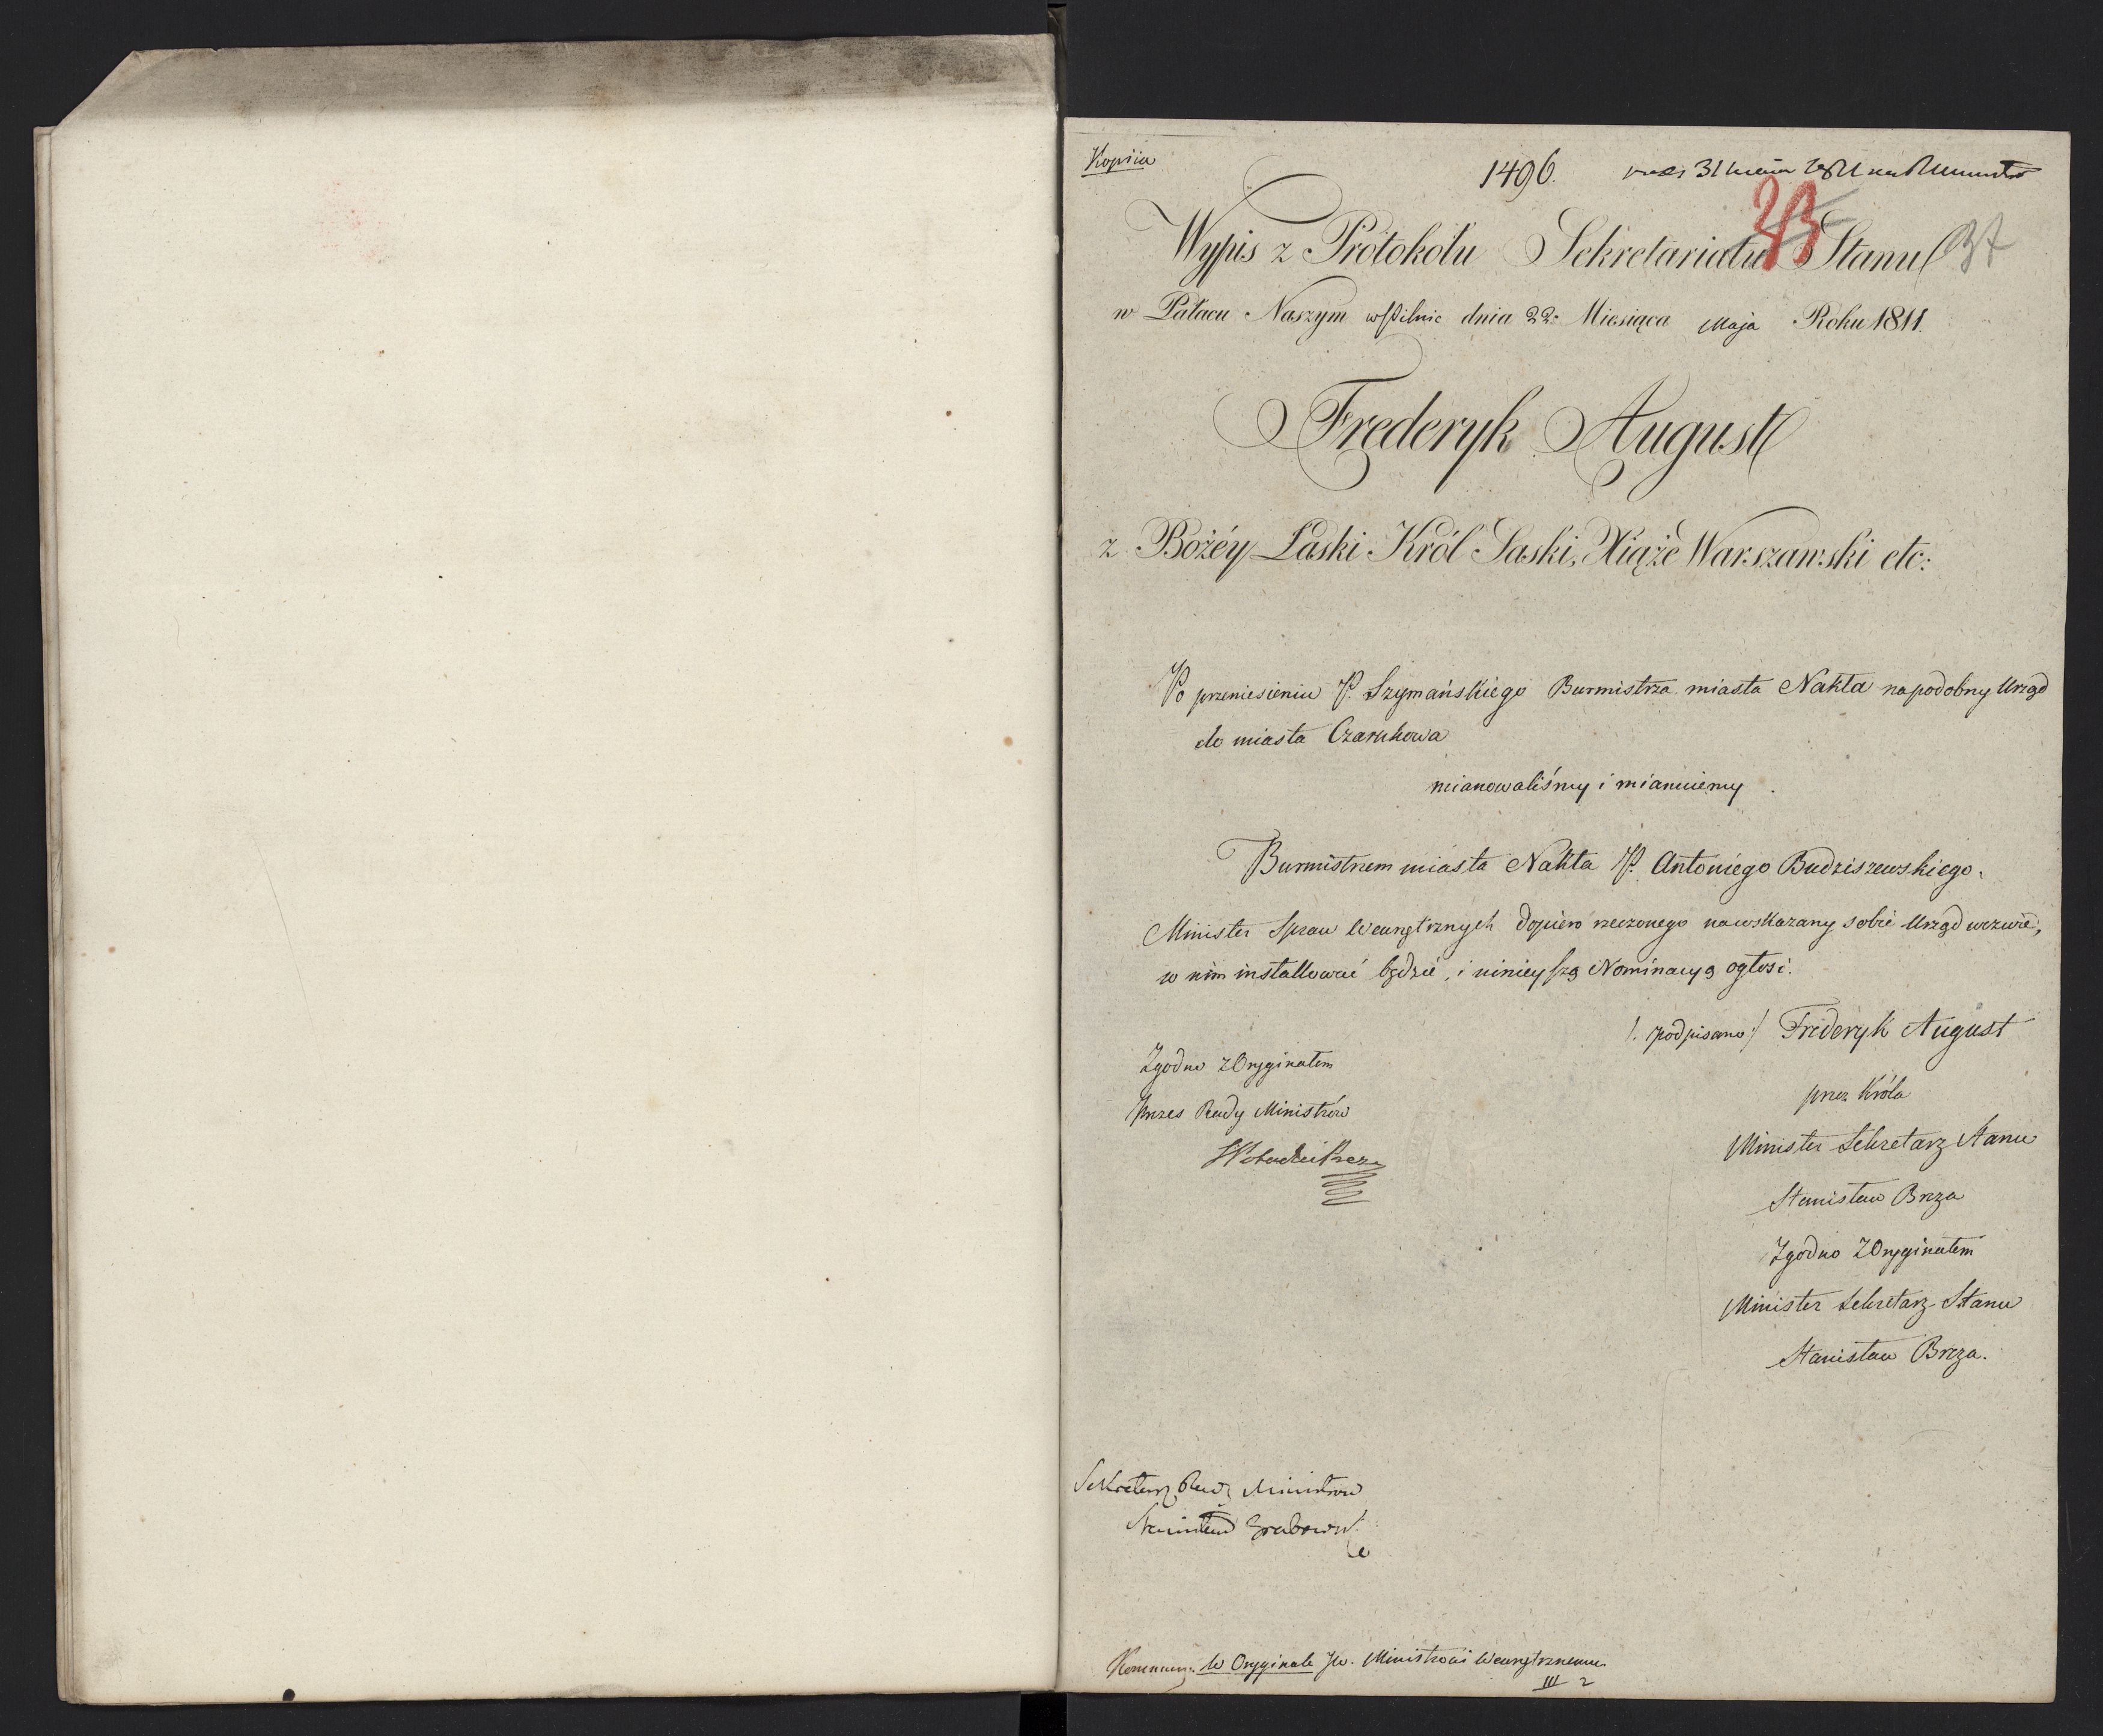 Kopiia
1496.
23
37
Wypis z Protokołu Sekretariatu Stanu
w Pałacu Naszym w Pilnic dnia 22: Miesiąca Maja Roku 1811.
Frederyk August
z Bożéy Łaski Król Saski, Xiążę Warszawski etc:
Po przeniesieniu P. Szymańskiego Burmistrza miasta Nakła na podobny Urząd
do miasta Czarnkowa
mianowaliśmy i mianuiemy
Burmistrzem miasta Nakła P. Antoniego Budziszewskiego.
Minister Spraw Wewnętrznych dopiero rzeczonego na wskazany sobie Urząd wezwie,
w nim installować będzie, i ninieyszą Nominacyą ogłosi.
/: podpisano :/ Frideryk August
przez Króla
Minister Sekretarz Stanu
Stanisław Breza
Zgodno z Oryginałem
Minister Sekretarz Stanu
Stanisław Breza.
Zgodno z Oryginałem
Prezes Rady Ministrów
Sekretarz Rady Ministrow
Stanisław Grabowski
w Oryginale JW. Ministrowi Wewnętrznemu
III 2